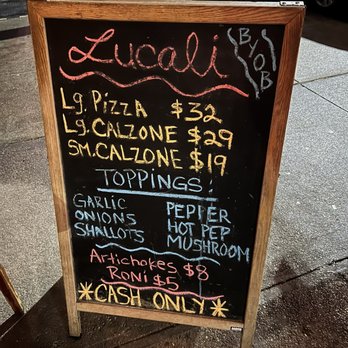 Lucali
BYOB
Lg. PIZZA $32
Lg. CALZONE $29
SM. CALZONE $19
TOPPINGS:
GARLIC
ONIONS
SHALLOTS
PEPPER
HOT PEP
MUSHROOM
Artichokes $8
RONI $5
*CASH ONLY*